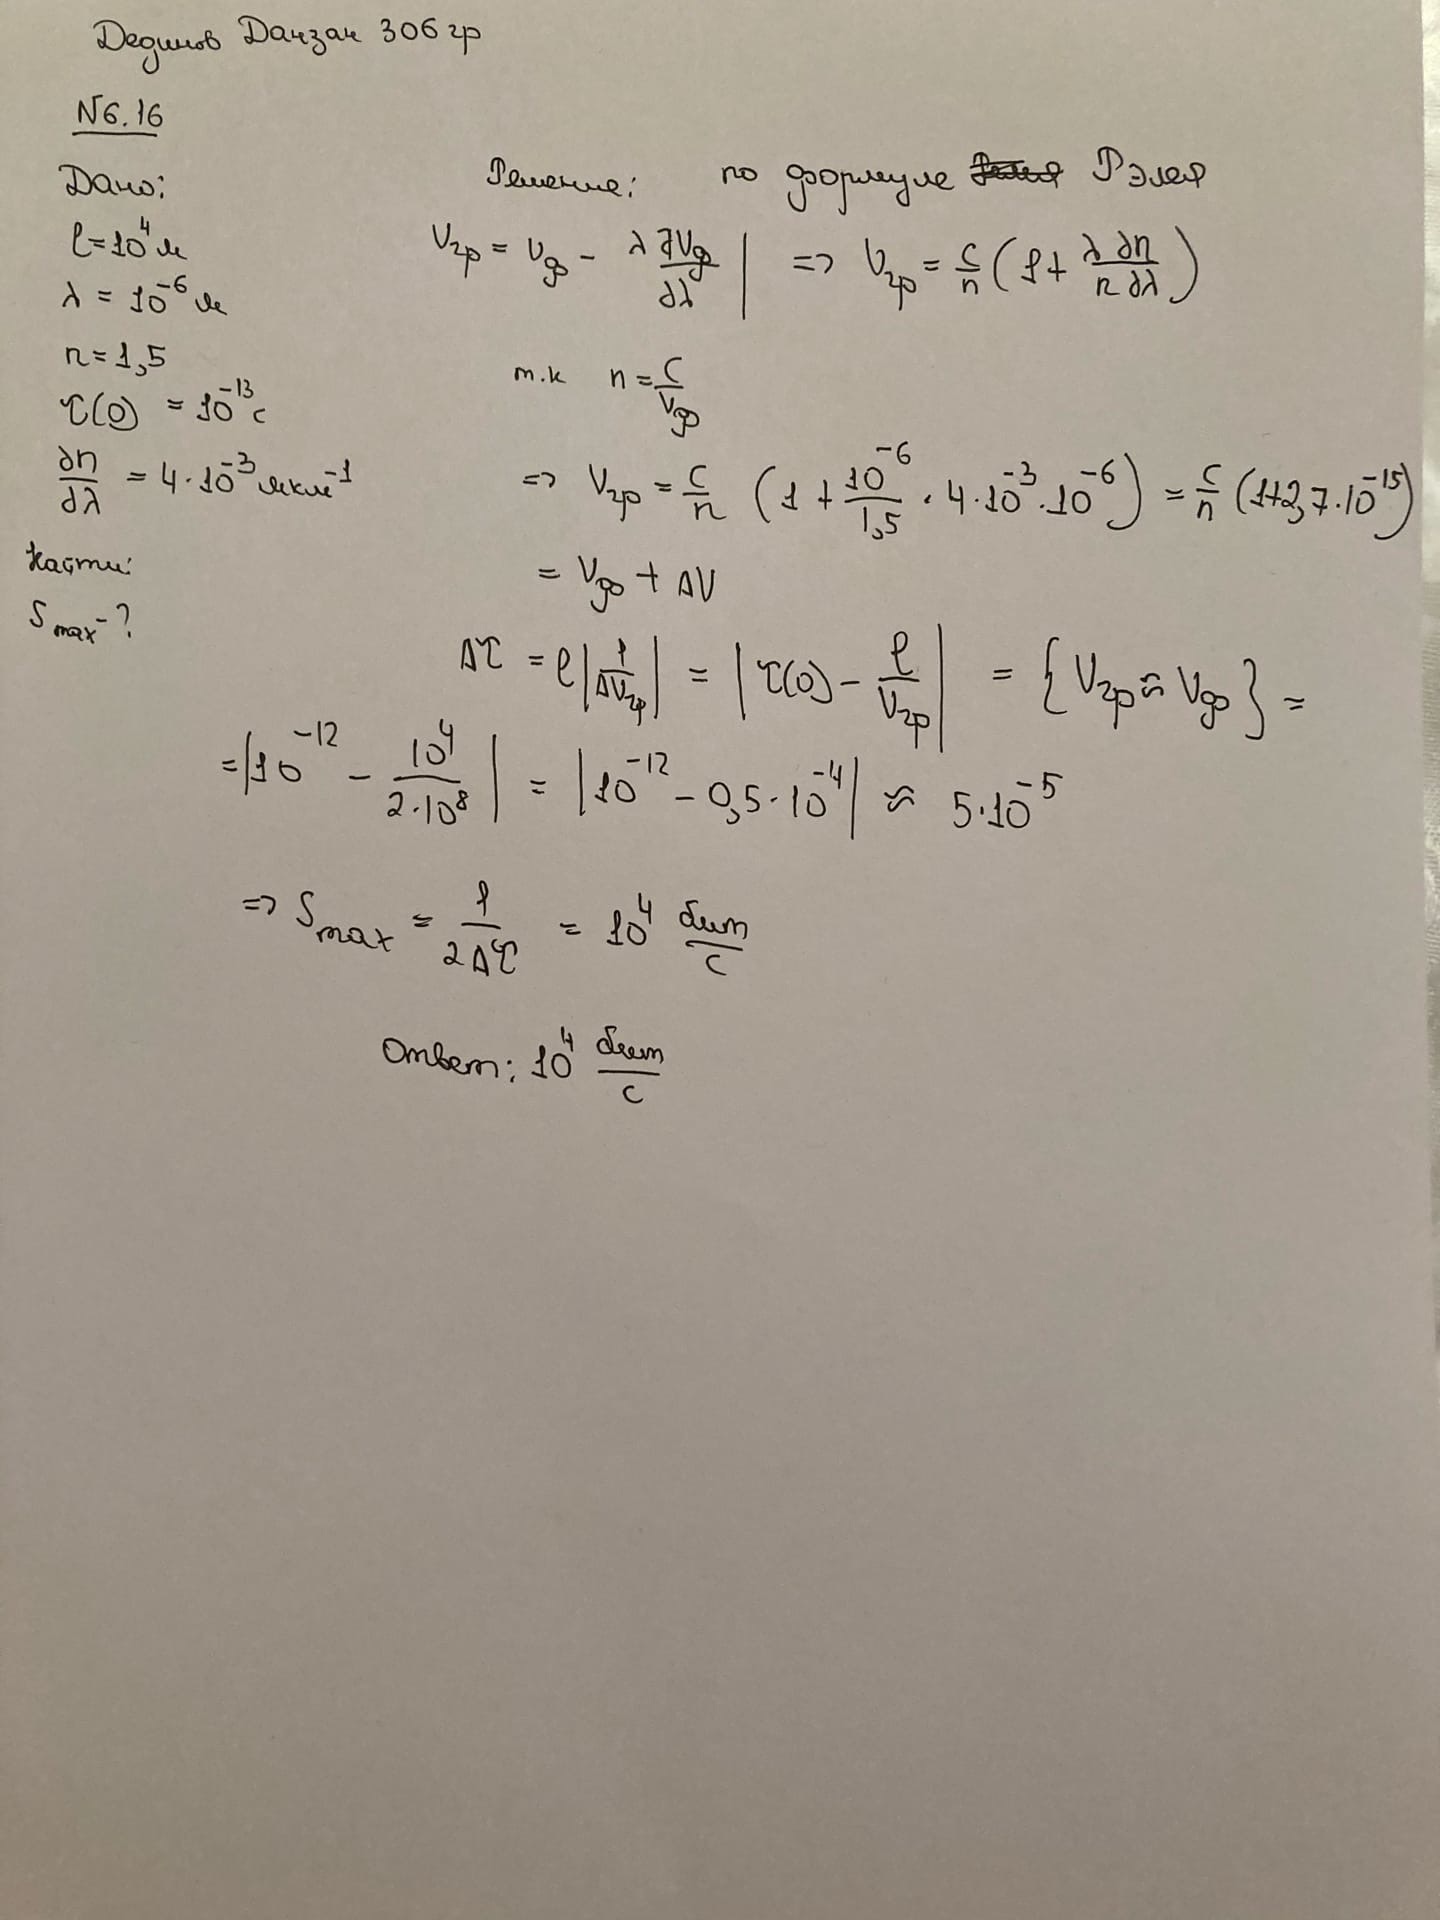 Дединов Данзан 306 гр
N6.16
Дано:
l=10⁴ м
λ = 10⁻⁶ м
n=1,5
τ(0) = 10⁻¹³ с
∂n/∂λ = 4·10⁻³ мкм⁻¹
Найти:
S max - ?
Решение: по формуле Рэлея
Vгр = Vф - λ ∂Vф/∂λ | => Vгр = c/n (1 + λ ∂n / n ∂λ)
т.к n = c/Vф
=> Vгр = c/n (1 + 10⁻⁶/1,5 · 4·10⁻³·10⁻⁶) = c/n (1+2,7·10⁻¹⁵)
= Vф + ΔV
Δτ = l|1/ΔVгр| = |τ(0) - l/Vгр| = {Vгр ≈ Vф} =
=|10⁻¹² - 10⁴/2·10⁸| = |10⁻¹² - 0,5·10⁻⁴| ≈ 5·10⁻⁵
=> S max = 1/2Δτ = 10⁴ бит/с
Ответ: 10⁴ бит/с